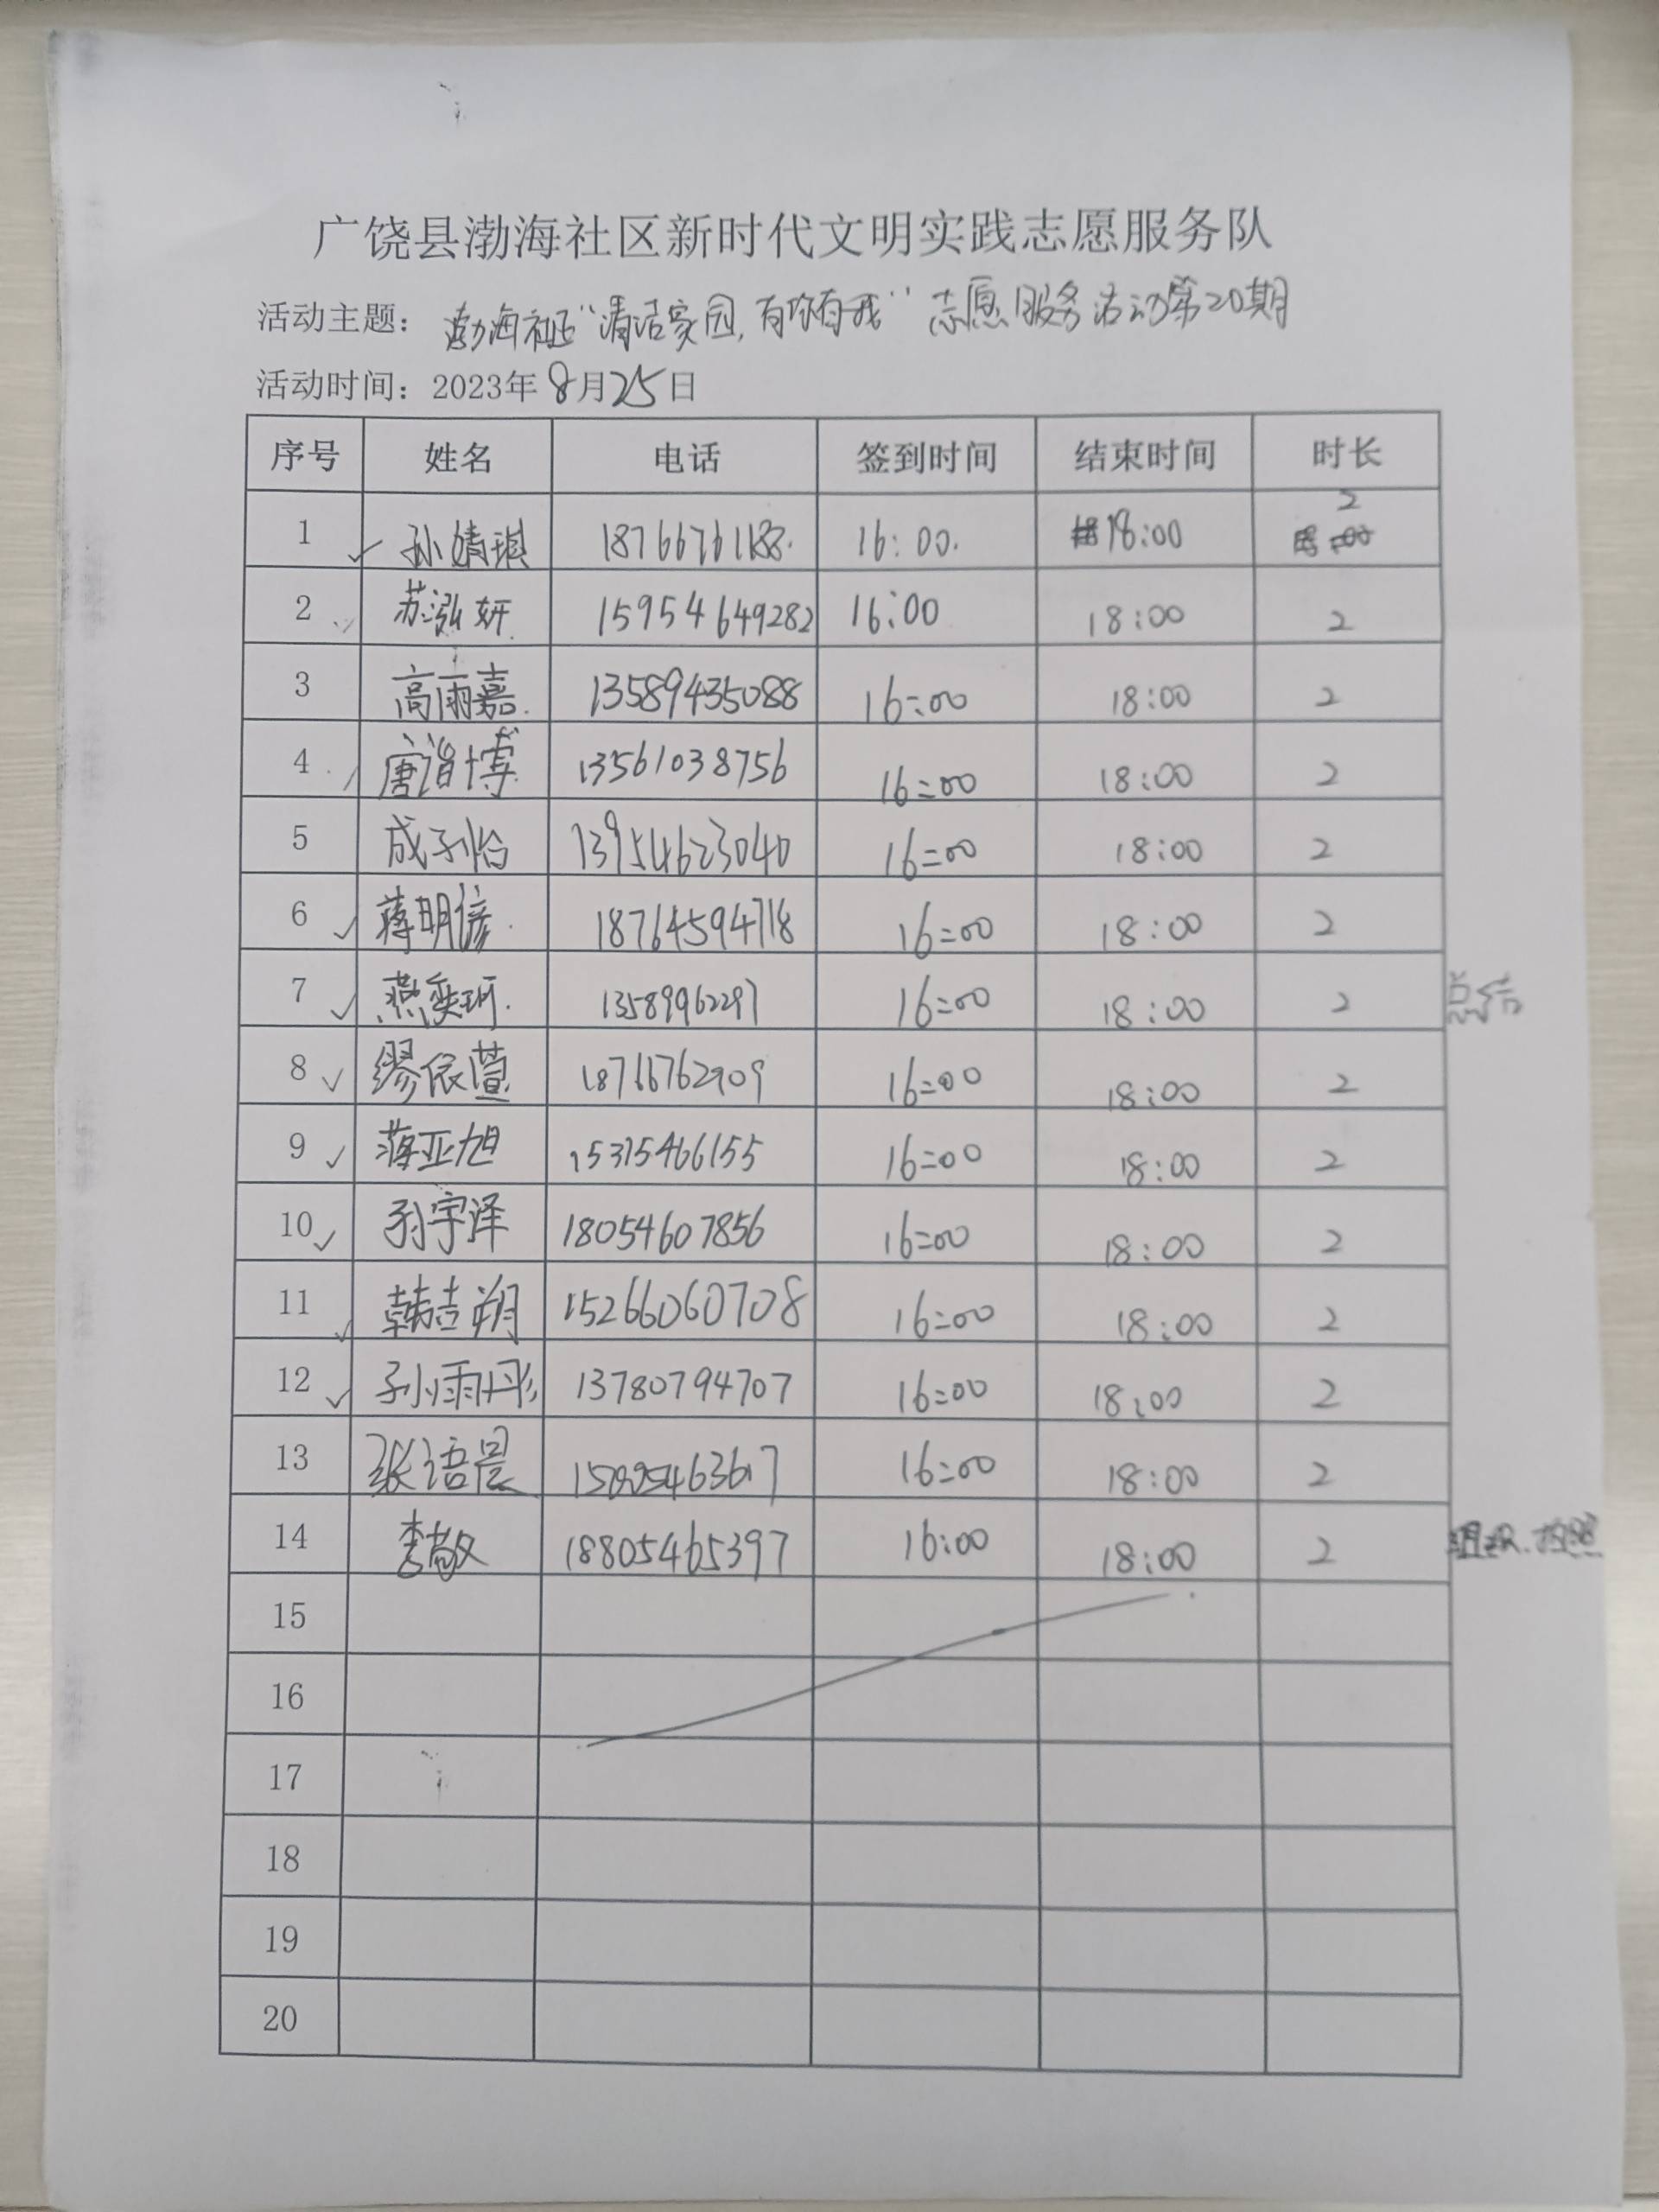 广饶县渤海社区新时代文明实践志愿服务队
活动主题： 渤海社区“清洁家园，有你有我”志愿服务活动第20期
活动时间：2023年8月25日
序号 姓名 电话 签到时间 结束时间 时长
1 孙婧琪 16:00. 18:00 2
2 苏泓妍 15954649282 16:00 18:00 2
3 高雨嘉 13589435088 16:00 18:00 2
4 唐诣博 13561038756 16:00 18:00 2
5 成子怡 13954623040 16:00 18:00 2
6 蒋明谚 18764594718 16:00 18:00 2
7 燕奕珂 13589962297 16:00 18:00 2 总结
8 缪依萱 18766762909 16:00 18:00 2
9 蒋亚旭 15315466155 16:00 18:00 2
10 孙宇泽 18054607856 16:00 18:00 2
11 韩吉朔 15266060708 16:00 18:00 2
12 孙雨彤 13780794707 16:00 18:00 2
13 张语晨 16:00 18:00 2
14 李敬 18805465397 16:00 18:00 2 组织、拍照
15
16
17
18
19
20